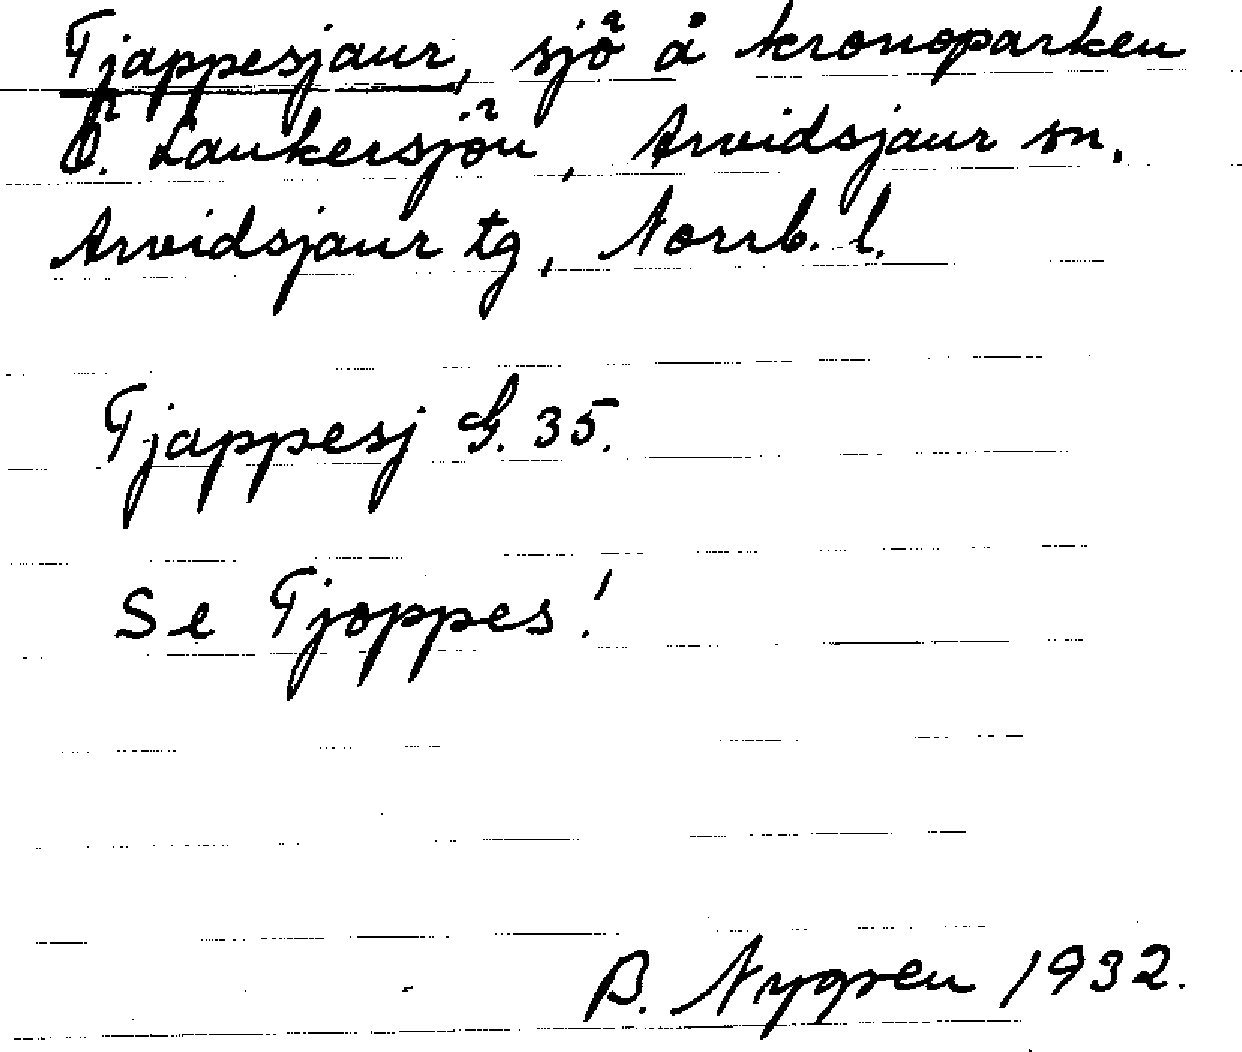 Tjappesjaur, sjö å kronoparken
Ö. Laukersjön, Arvidsjaur sn.
Arvidsjaur tg, Norrb. l.
Tjappesj G. 35.
Se Tjoppes!
B. Nygren 1932.